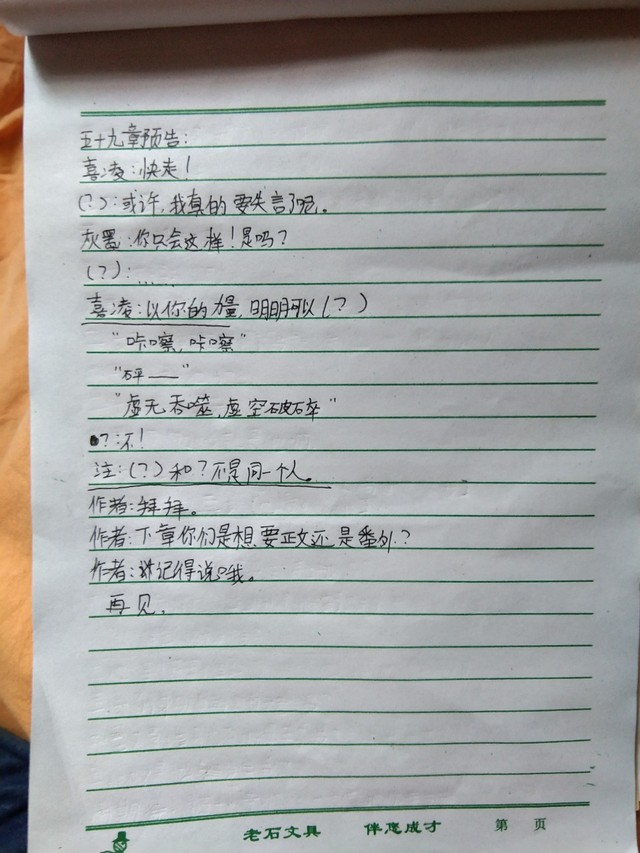 五十九章预告：
喜凌：快走！
(？)：或许，我真的要失言了呢。
灰墨：你只会这样！是吗？
(？)：……
喜凌：以你的力量，明明可以(？)
“咔嚓，咔嚓”
“砰——”
“虚无吞噬，虚空破碎”
？：不！
注：(？)和？不是同一个人。
作者：拜拜。
作者：下章你们是想要正文还是番外？
作者：记得说我。
再见.
老石文具 伴您成才 第 页